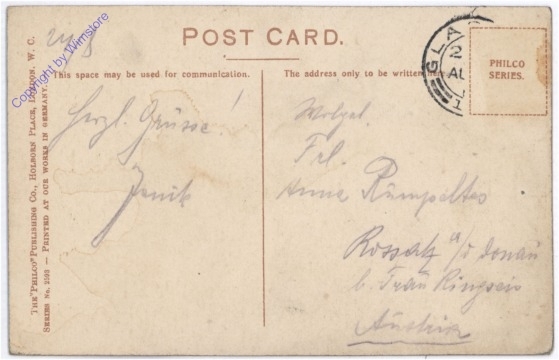 POST CARD.
This space may be used for communication.
The address only to be written here.
PHILCO
SERIES.
GLA
2
AU
1
Herzl. Grüsse!
Wolgeb.
Frl.
Anna Rümpeltes
Rossatz a/d Donau
b. Frau Ringseis
Austria
THE "PHILCO" PUBLISHING CO., HOLBORN PLACE, LONDON, W. C.
SERIES No. 2593 — PRINTED AT OUR WORKS IN GERMANY.
Copyright by Wimstore